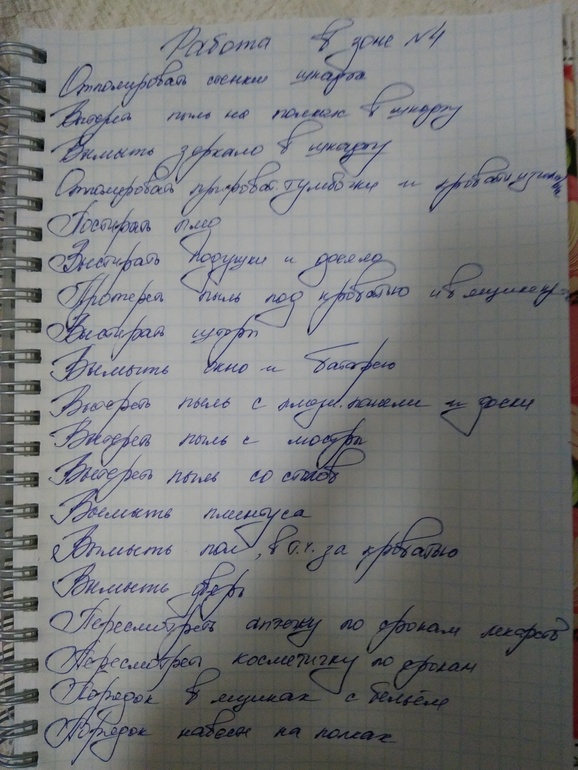 Работа в зоне №4
Отполировать стенки шкафа
Вытереть пыль на полках в шкафу
Вымыть зеркало в шкафу
Отполировать прикроват. тумбочки и кровать
Постирать плед
Выстирать подушки и одеяло
Протереть пыль под кроватью и в ящике
Выстирать шторы
Вымыть окно и батарею
Вытереть пыль с панели и доски
Вытереть пыль с люстры
Вытереть пыль со столов
Вымыть плинтуса
Вымыть пол, в т.ч. за кроватью
Вымыть дверь
Пересмотреть аптечку по срокам лекарств
Пересмотреть косметичку по срокам
Порядок в ящиках с бельём
Порядок навести на полках